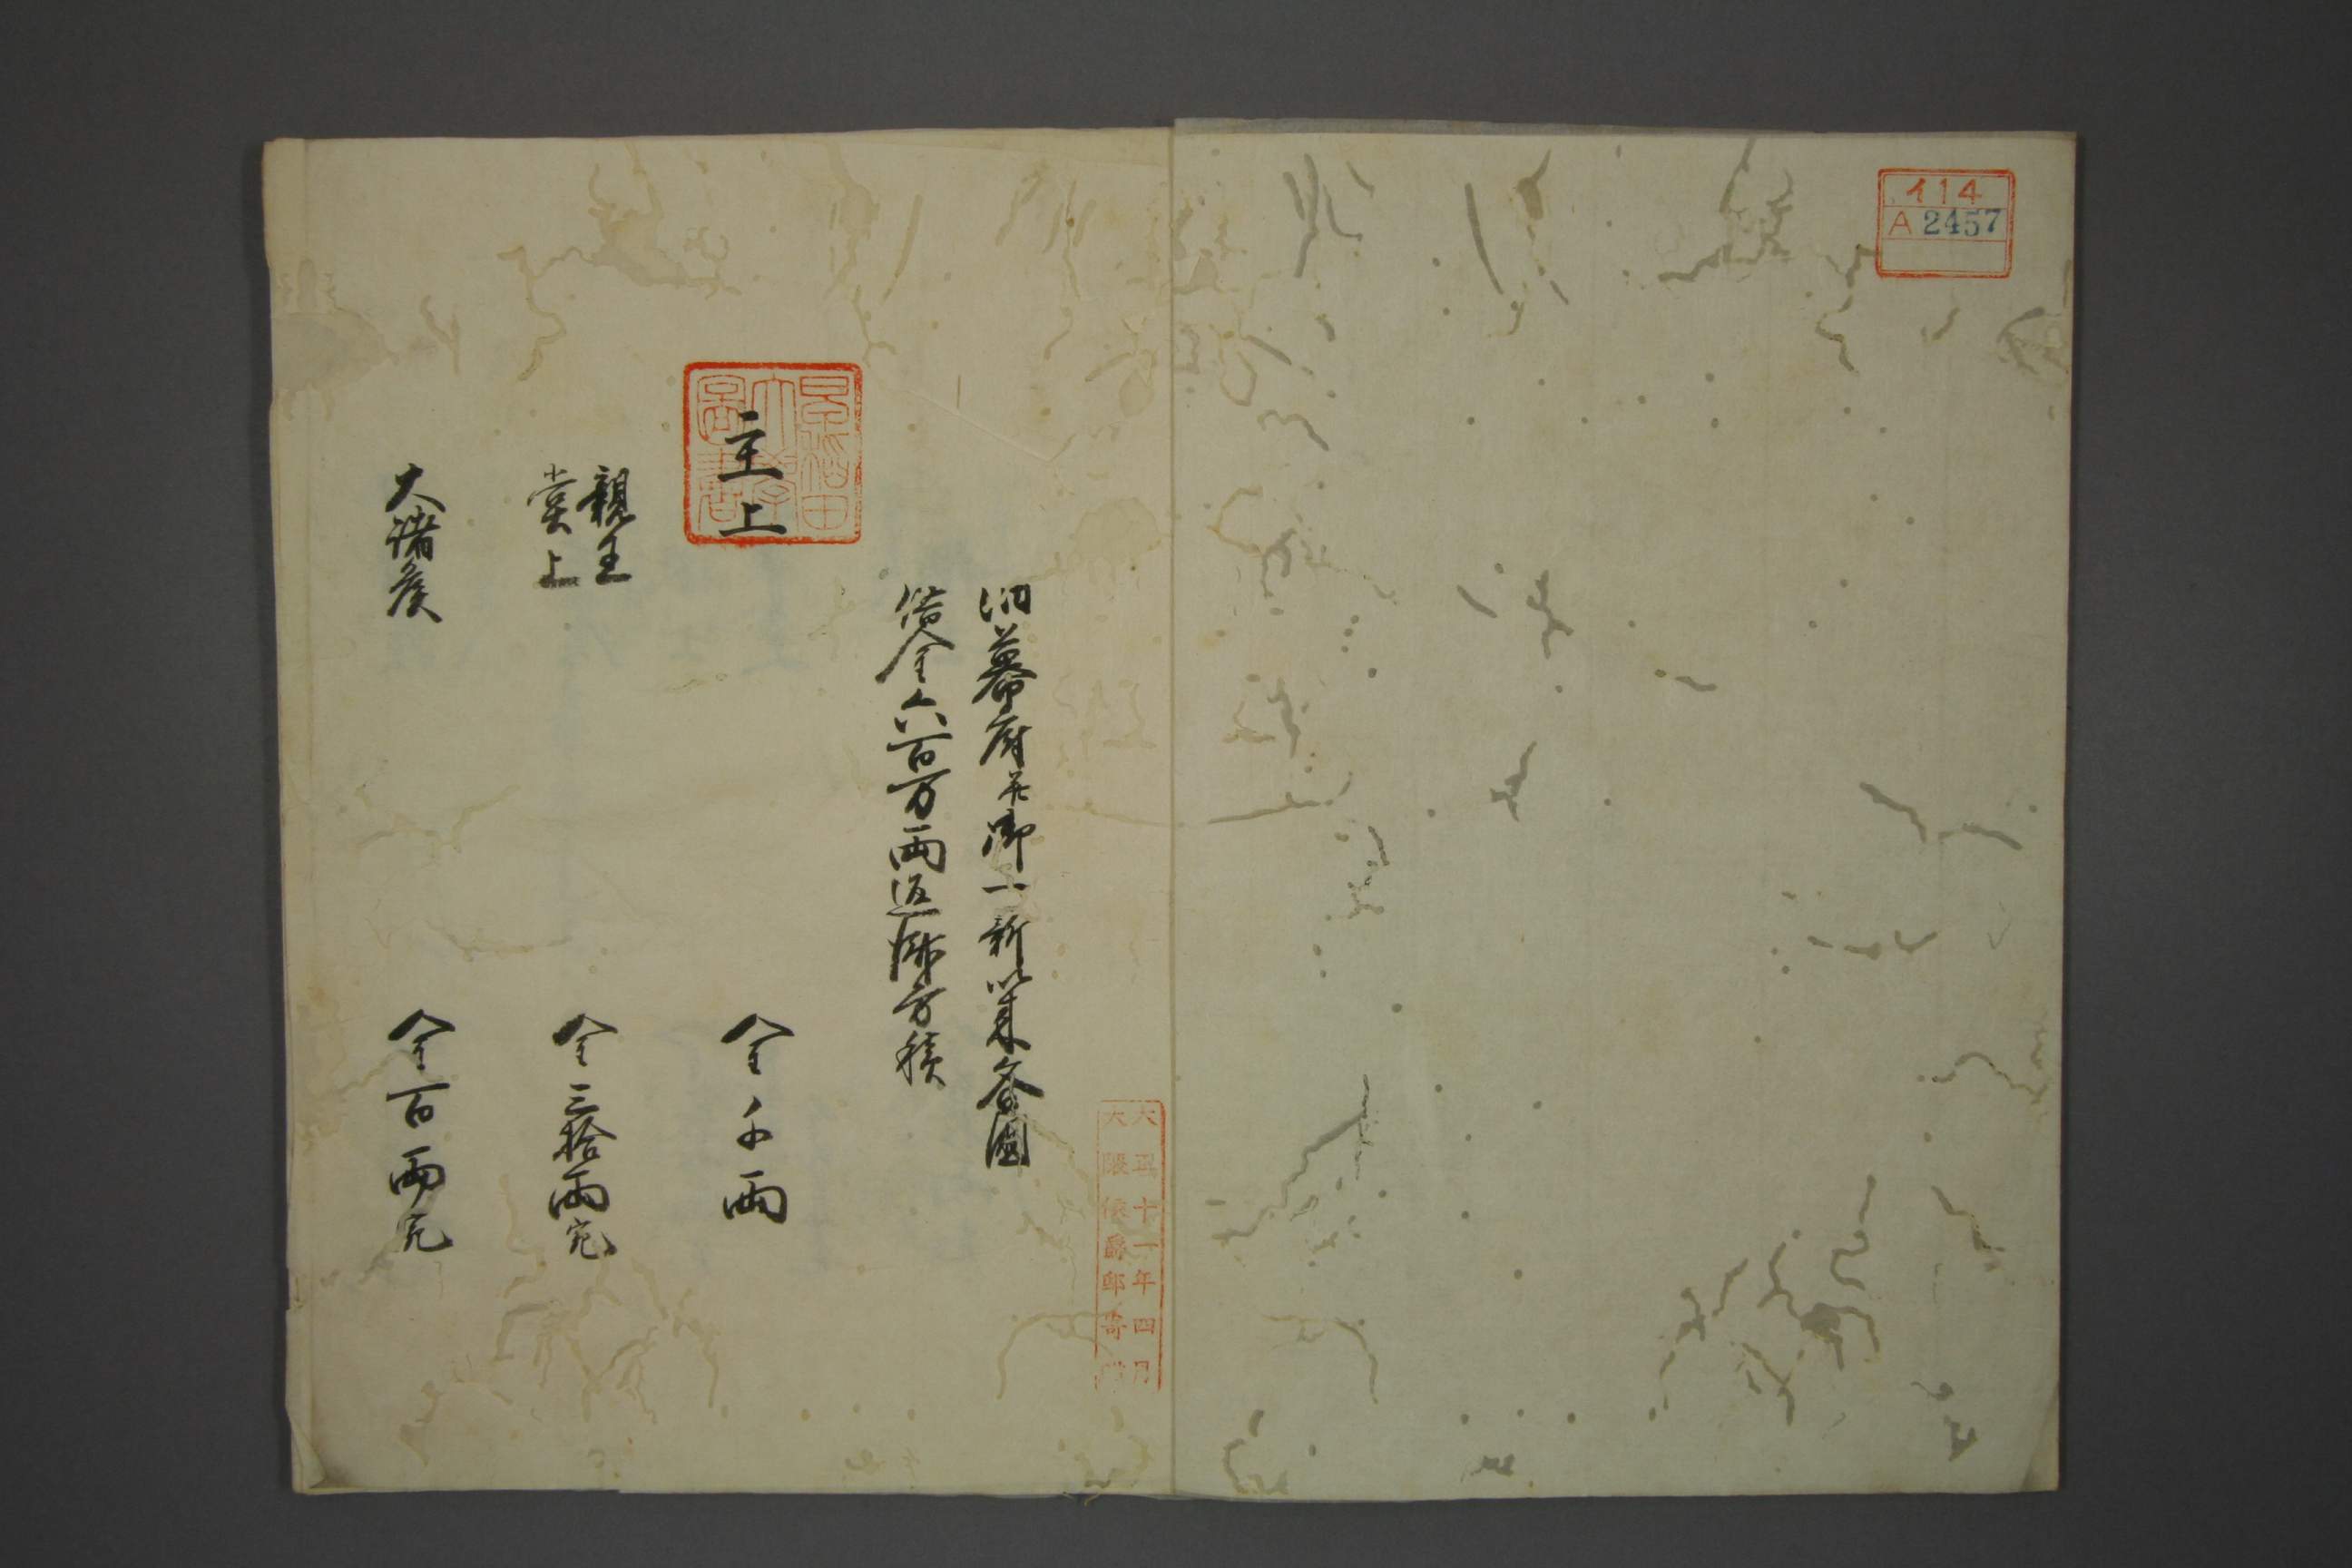 イ14
A 2457
大正十一年四月
大隈侯爵邸寄贈
旧幕府并御一新以来各国
借金六百万両返済方積
早稲田大学図書
主上
金千両
親王
堂上
金三拾両宛
大諸侯
金百両宛